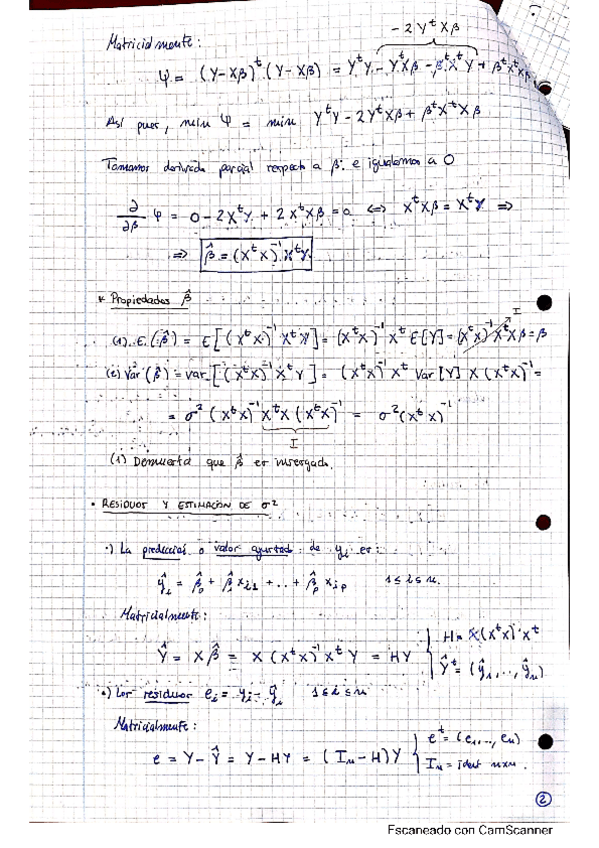 - 2 YᵗXβ
Matricialmente:
Ψ = (Y-Xβ)ᵗ (Y-Xβ) = YᵗY - YᵗXβ - βᵗXᵗY + βᵗXᵗXβ
Así pues, min Ψ = min YᵗY - 2YᵗXβ + βᵗXᵗXβ
Tomamos derivada parcial respecto a β e igualamos a 0
∂/∂β Ψ = 0 - 2XᵗY + 2XᵗXβ = 0 ⟺ XᵗXβ = XᵗY ⟹
⟹ β̂ = (XᵗX)⁻¹ XᵗY
* Propiedades β̂
I
(1) E(β̂) = E[(XᵗX)⁻¹ XᵗY] = (XᵗX)⁻¹ Xᵗ E[Y] = (XᵗX)⁻¹ XᵗXβ = β
(2) Var(β̂) = Var[(XᵗX)⁻¹ XᵗY] = (XᵗX)⁻¹ Xᵗ Var[Y] X (XᵗX)⁻¹ =
= σ² (XᵗX)⁻¹ XᵗX (XᵗX)⁻¹ = σ² (XᵗX)⁻¹
I
(1) Demuestra que β̂ es insesgado.
• RESIDUOS Y ESTIMACIÓN DE σ²
·) La predicción o valor ajustado de yᵢ es:
ŷᵢ = β̂₀ + β̂₁ xᵢ₁ + .. + β̂ₚ xᵢₚ 1 ≤ i ≤ n.
Matricialmente:
Ŷ = Xβ̂ = X (XᵗX)⁻¹ XᵗY = HY { H = X(XᵗX)⁻¹Xᵗ
Ŷᵗ = (ŷ₁, .., ŷₙ)
·) Los residuos eᵢ = yᵢ - ŷᵢ 1 ≤ i ≤ n
Matricialmente:
e = Y - Ŷ = Y - HY = (Iₙ - H) Y { eᵗ = (e₁, .., eₙ)
Iₙ = ident n×n.
2
Escaneado con CamScanner